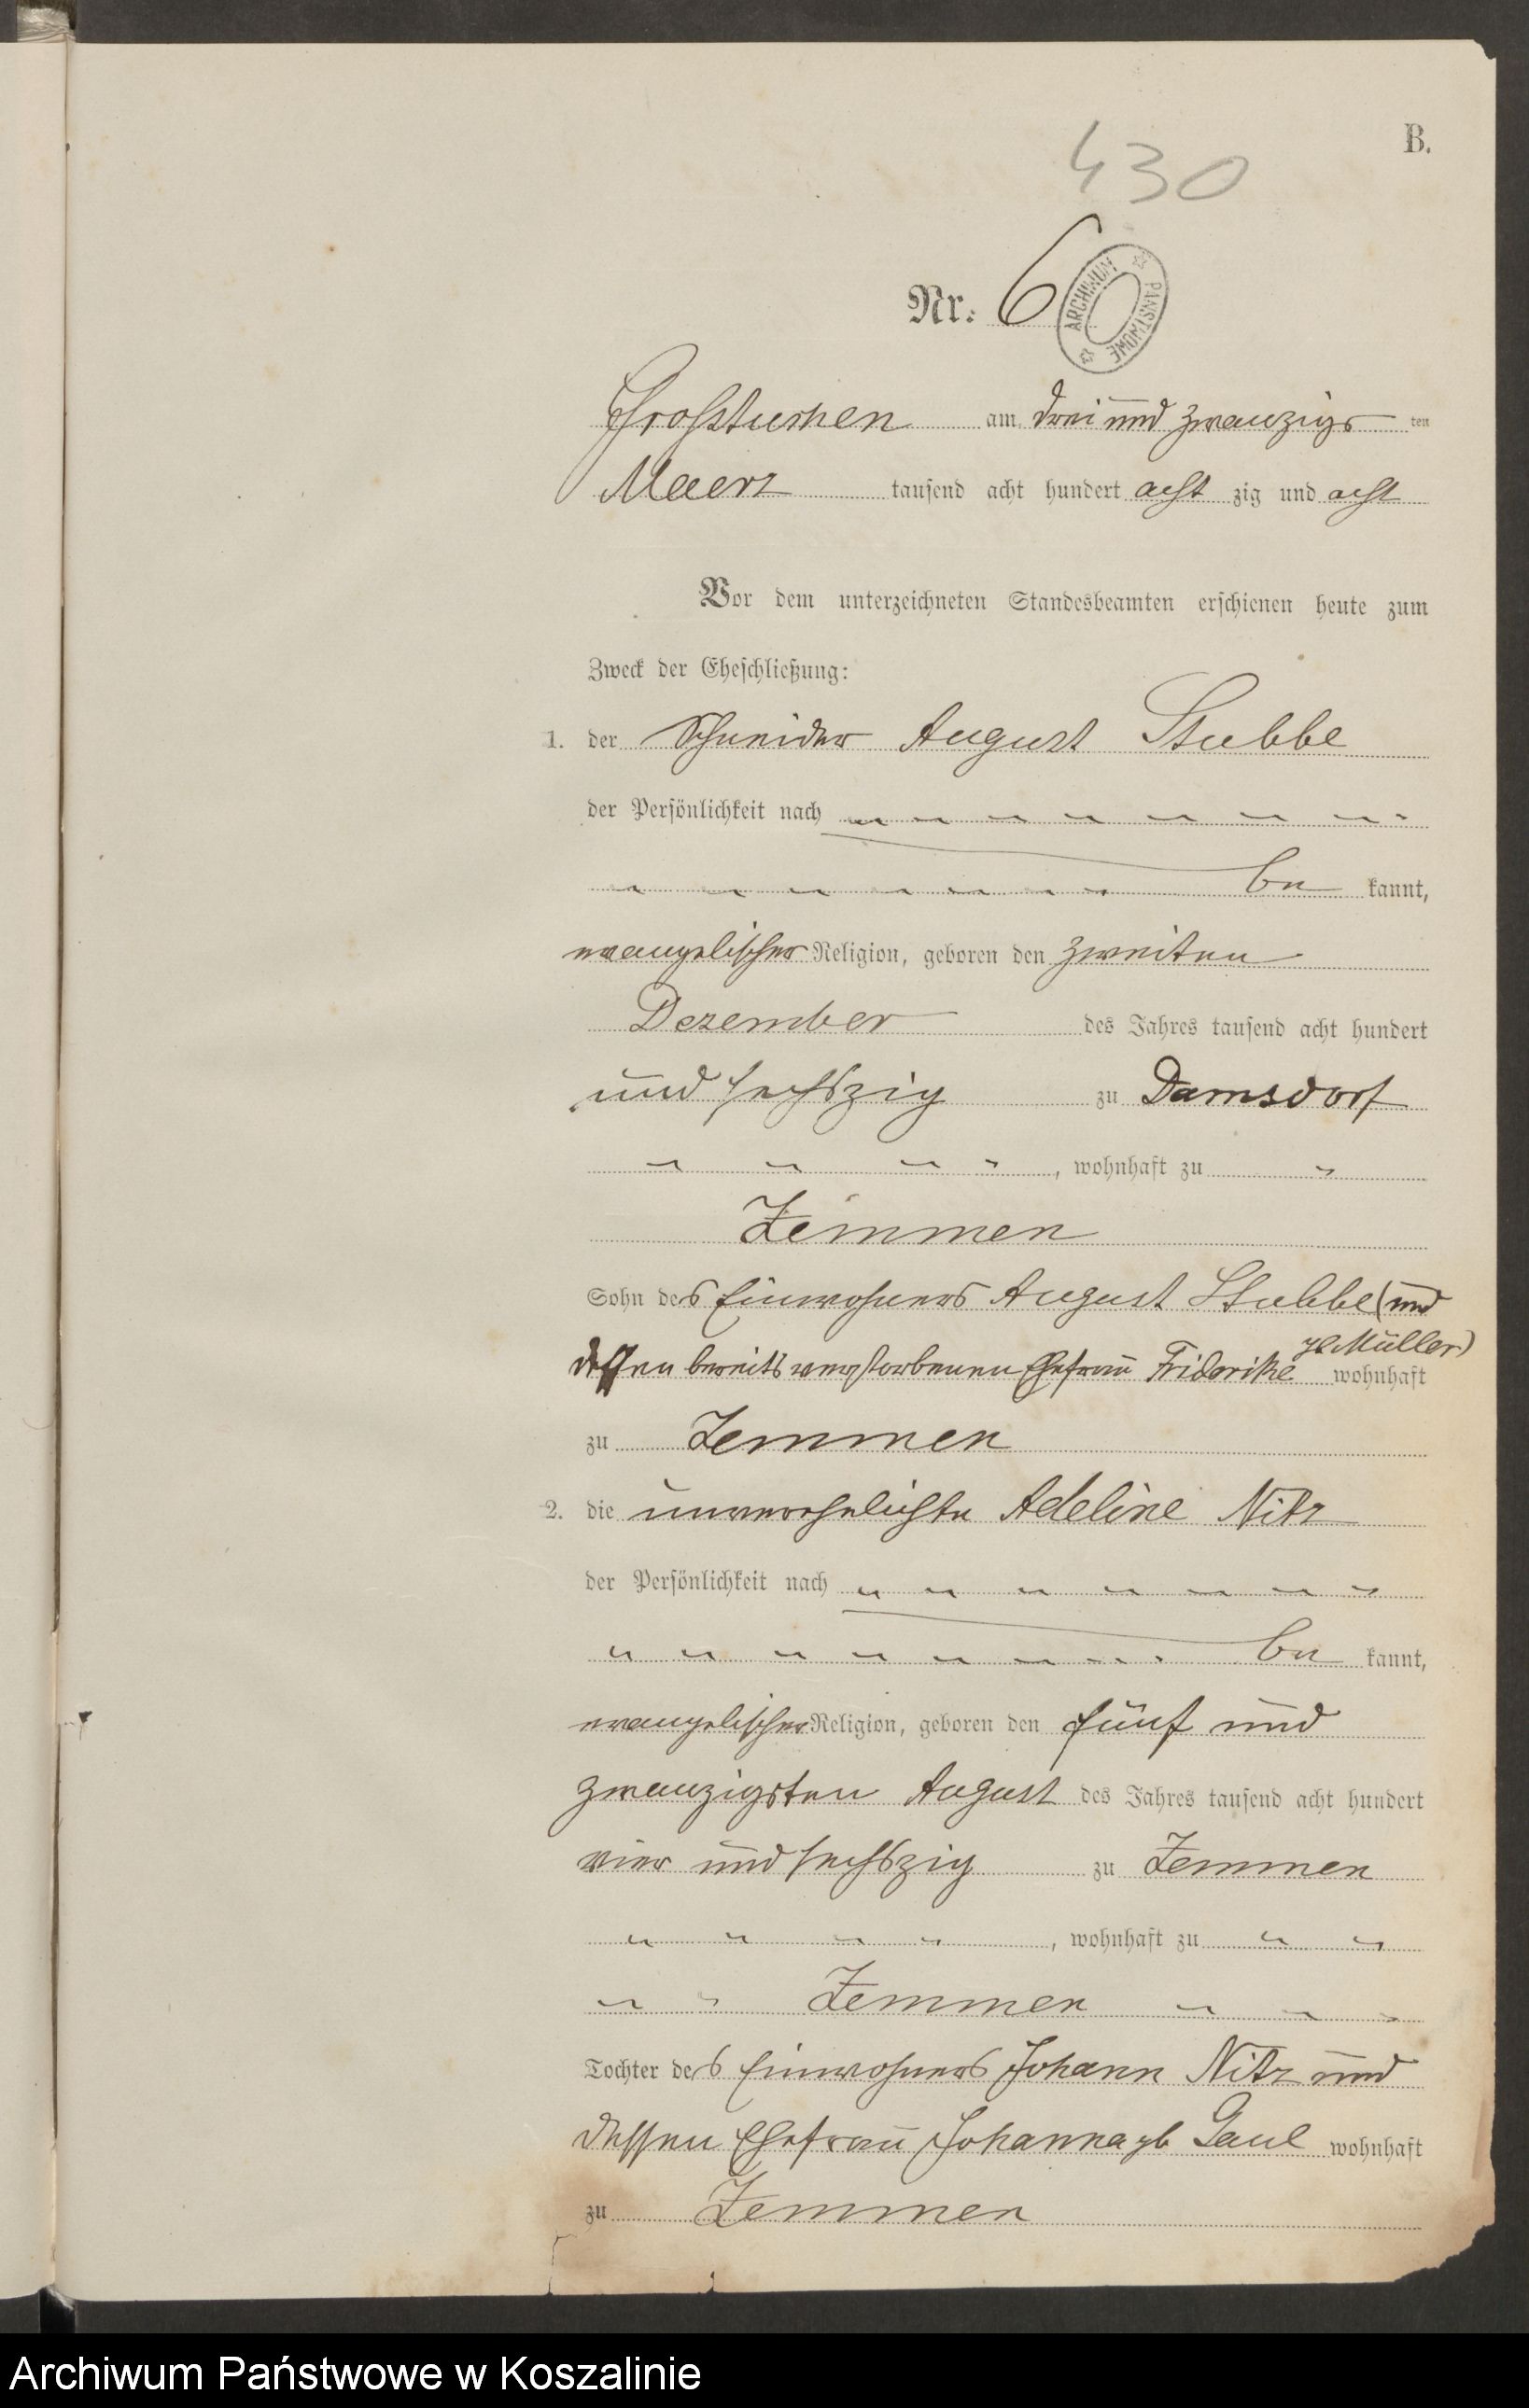 B.
430
Nr. 6
ARCHIWUM PAŃSTWOWE
Großtuchen am drei und zwanzigs ten
Maerz tausend acht hundert acht zig und acht
Vor dem unterzeichneten Standesbeamten erschienen heute zum
Zweck der Eheschließung:
1. der Schneider August Stubbe
der Persönlichkeit nach
be kannt,
evangelischer Religion, geboren den zweiten
Dezember des Jahres tausend acht hundert
und sechszig zu Damsdorf
, wohnhaft zu
Zemmen
Sohn des Einwohners August Stubbe (und
dessen bereits verstorbenen Ehefrau Friderike gb Müller) wohnhaft
zu Zemmen
2. die unverehelichte Adeline Nitz
der Persönlichkeit nach
be kannt,
evangelischer Religion, geboren den fünf und
zwanzigsten August des Jahres tausend acht hundert
vier und sechszig zu Zemmen
, wohnhaft zu
Zemmen
Tochter des Einwohners Johann Nitz und
dessen Ehefrau Johanna gb Gaul wohnhaft
zu Zemmen
Archiwum Państwowe w Koszalinie